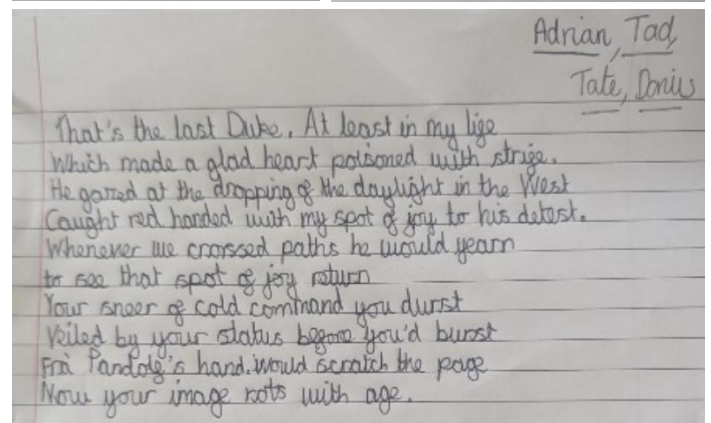 Adrian, Tad,
Tate, Donius
That's the last Duke. At least in my life
Which made a glad heart poisoned with strife.
He gazed at the dropping of the daylight in the West
Caught red handed with my spot of joy to his detest.
Whenever we crossed paths he would yearn
to see that spot of joy return
Your sneer of cold command you durst
Veiled by your status before you'd burst
Frà Pandolf's hand would scratch the page
Now your image rots with age.